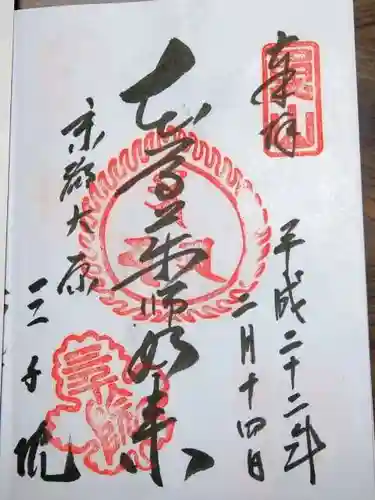 奉拝
平成二十二年
二月十四日
薬師如来
京都大原
三千院